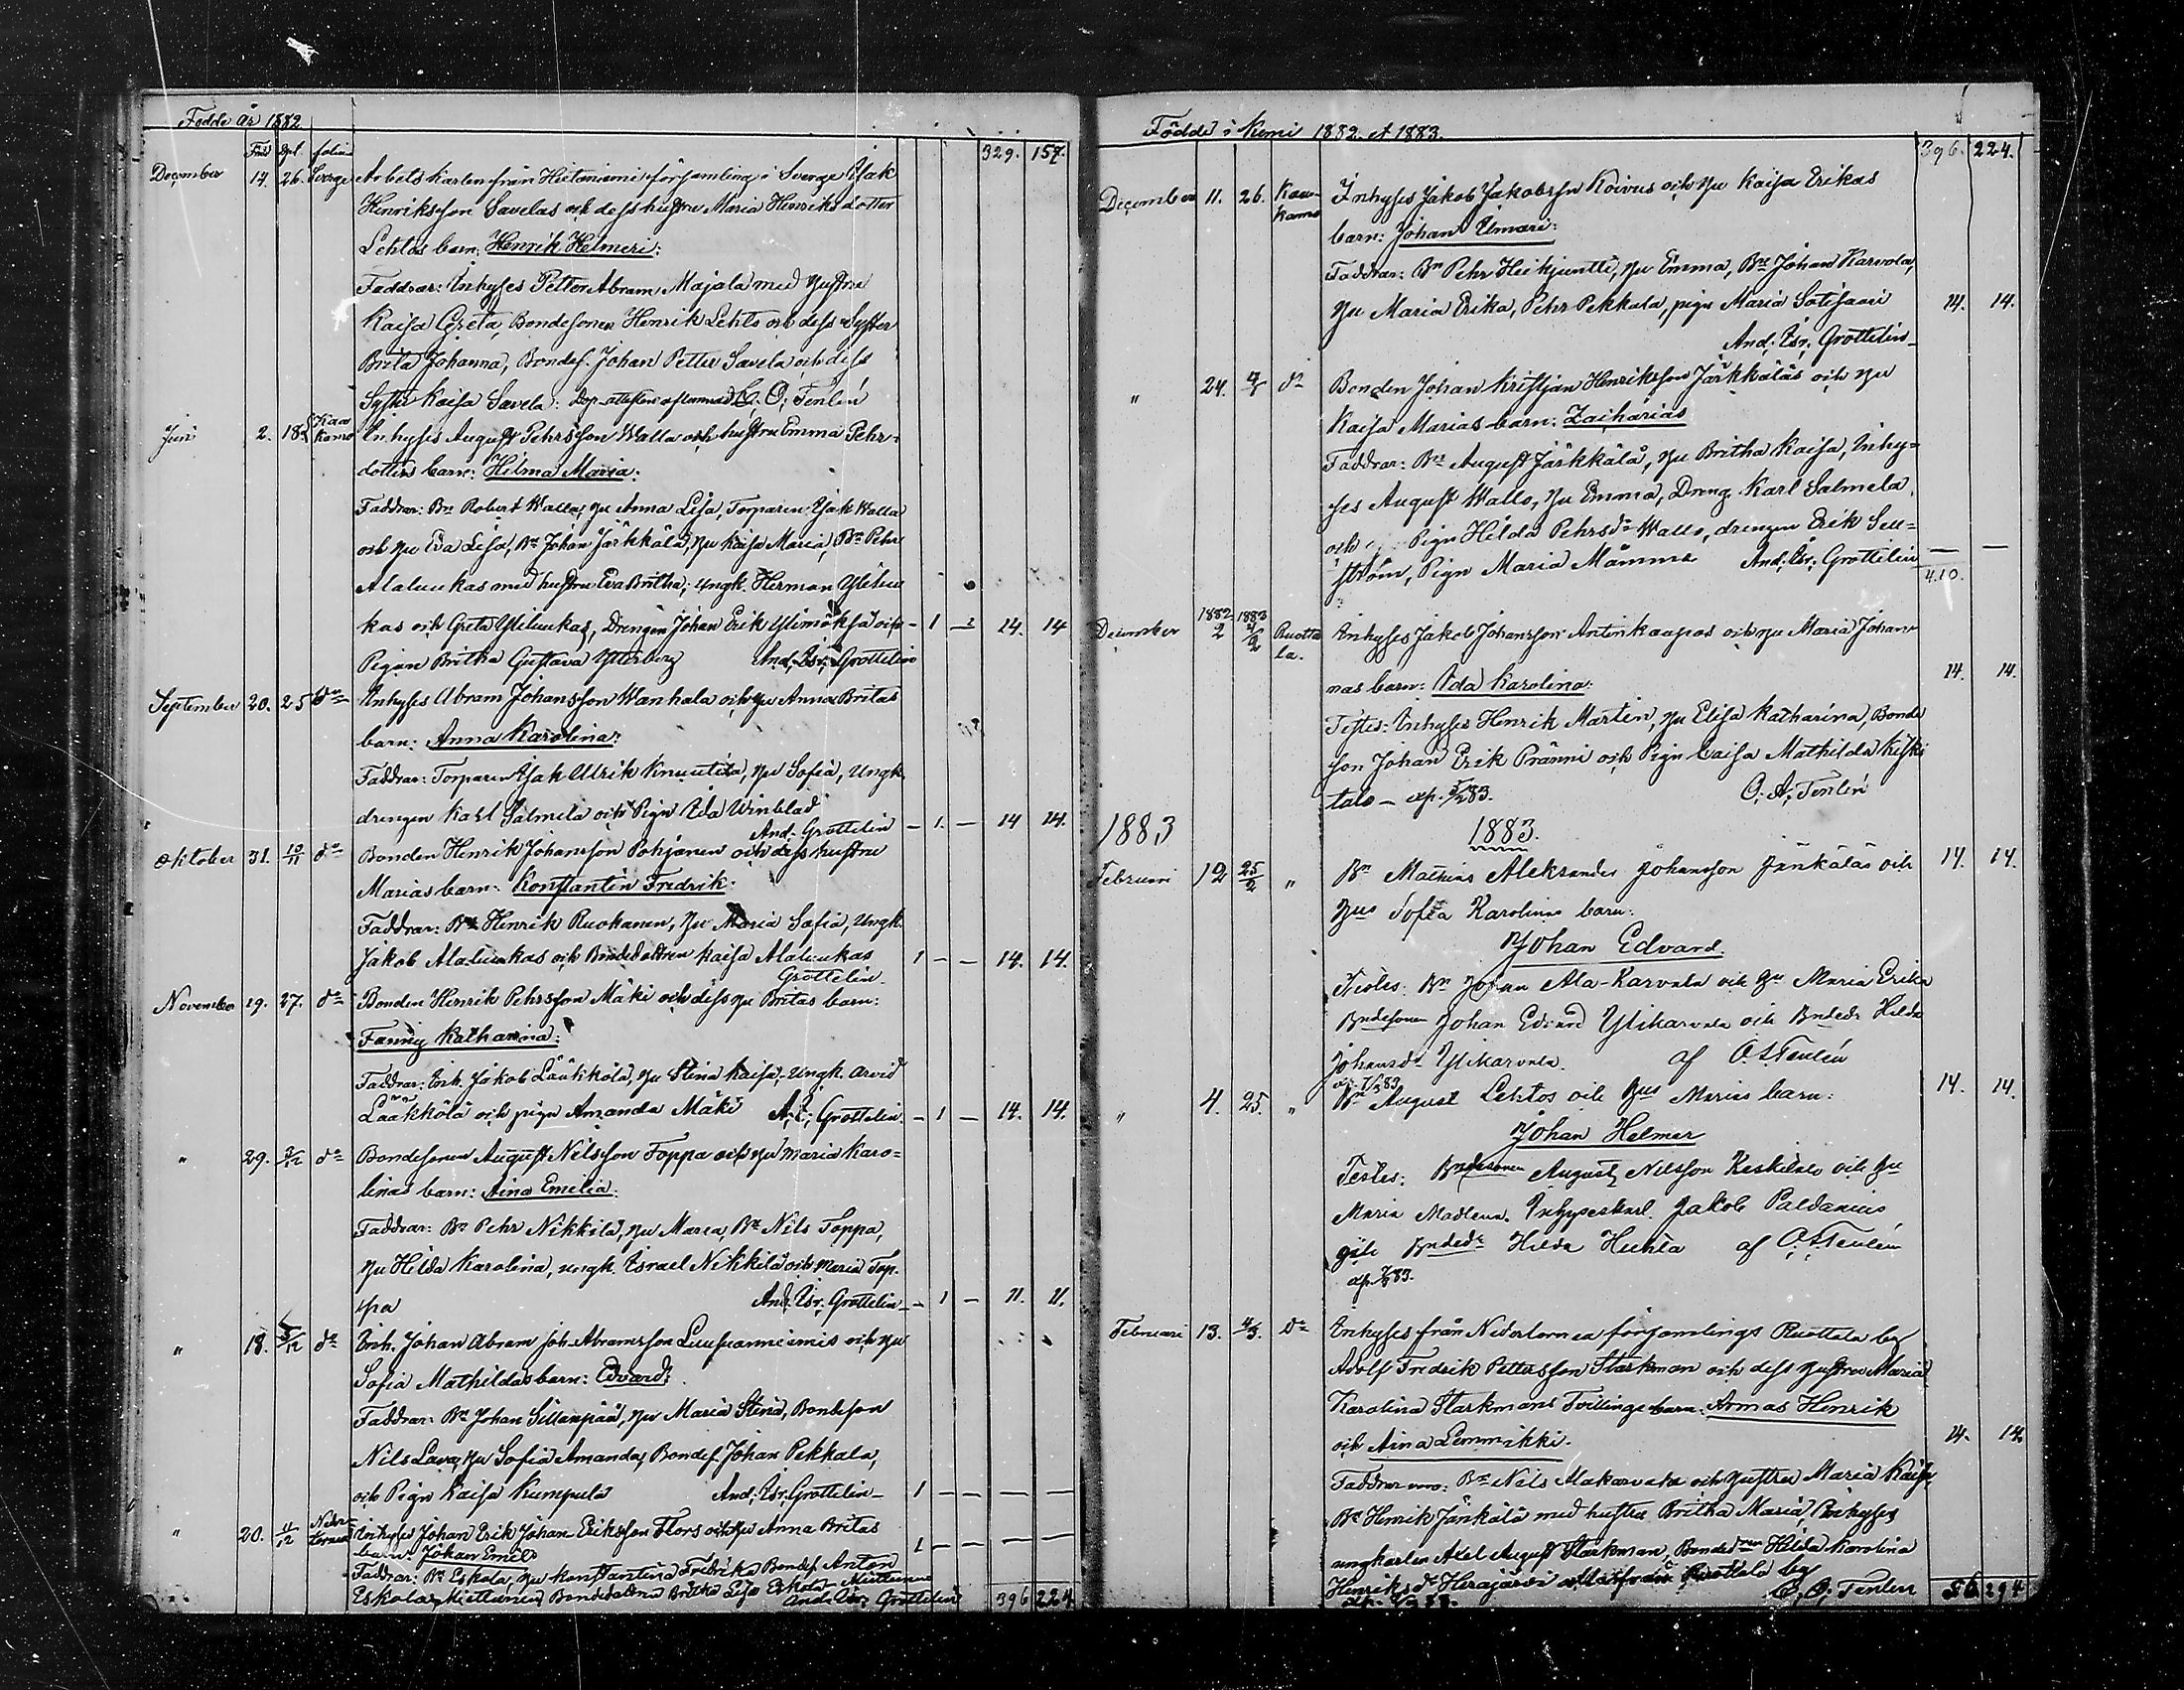 Födde År 1882.
Född Dpt. folium
329. 157.
December 14. 26. Sverge Arbets Karlen från Hietaniemi församling i Sverge Isak
Henriksson Savelas och dess hustru Maria Henriksdotter
Lehtos barn: Henrik Helmeri:
Faddrar: Inhyses Petter Abram Majala med hustru
Kaisa Greta, Bondesonen Henrik Lehto och dess Syster
Brita Johanna, Bondes. Johan Petter Savela och dess
Syster Kaisa Savela: O; Tenlén
Juni 2. 18 Kaakamo Inhyses August Pehrsson Walla och hustru Emma Pehrs-
dotters barn: Hilma Maria:
Faddrar: Bn Robert Walla, hu Anna Lisa, Torparen Isak Walla
och hu Eva Lisa, Bn Johan Järkkälä, hu Kaisa Maria, Bn Pehr
Alaluukas med hustru Eva Britha; ungk. Herman Yliluu
kas och Greta Yliluukas, Drengen Johan Erik Ylimöksä och - 1 - 14. 14
Pigan Britha Gustava Ytterberg And. Isr. Grottelin
September 20. 25 do Inhyses Abram Johansson Wanhala och hu Anna Britas
barn: Anna Karolina:
Faddrar: Torparen Isak Ulrik Knuutila, hu Sofia, Ungk.
drengen Karl Salmela och Pign Ida Winblad
And. Grottelin - 1. - 14 14.
Oktober 31. 10/11 do Bonden Henrik Johansson Pohjanen och dess hustru
Marias barn: Konstantin Fredrik:
Faddrar: Bn Henrik Ruokanen, hu Maria Sofia, Ungk.
Jakob Alaluukas och Bondedottren Kaisa Alaluukas 1 - - 14. 14.
Grottelin.
November 19. 27. do Bonden Henrik Pehrsson Mäki och dess hu Britas barn:
Fanny Katharina:
Faddrar: Inh. Jakob Lääkkölä, hu Stina Kaisa, Ungk. Arvid
Lääkkölä och pign Amanda Mäki A; I; Grottelin. - 1 - 14. 14.
" 29. 3/12 do Bondesonen August Nilsson Toppa och hu Maria Karo-
linas barn: Aina Emilia:
Faddrar: Bn Pehr Nikkilä, hu Maria, Bn Nils Toppa,
hu Hilda Karolina, ungk. Israel Nikkilä och Maria Top-
pa And. Isr. Grottelin - 1 - 11. 11.
" 18. 3/12 do Inh. Johan Abram Joh. Abramsson Luusuanniemis och hu
Sofia Mathildas barn: Edvard:
Faddrar: Bn Johan Sillanpää, hu Maria Stina, Bondeson
Nils Lava, hu Sofia Amanda, Bondes. Johan Pekkala,
och Pign Kaisa Kumpula And. Isr. Grottelin - 1 - - - -
" 20. 11/12 Neder-tornea Inhyses Johan Erik Johan Eriksson Flors och hu Anna Britas
barn: Johan Emil: 1 - - - -
Faddrar: Bn Eskola, hu Konstantina Fredrika Bondes. Anton
Eskola Miettunen Bondedottren Britha Lisa Eskola-Miettunen
And. Isr. Grottelin 396 224
Födde i Kemi 1882. et 1883.
396. 224.
December 11. 26. Kaakamo Inhyses Jakob Jakobsson Koivus och hu Kaisa Erikas
barn: Johan Ilmari:
Faddrar: Bn Pehr Heikjuntti, hu Emma, Bn Johan Karvola,
hu Maria Erika, Pehr Pekkala, pign Maria Sotisaari 14. 14.
And. Isr. Grottelin
" 24. do Bonden Johan Kristjan Henriksson Järkkäläs och hu
Kaisa Marias barn: Zacharias
Faddrar: Bn August Järkkälä, hu Britha Kaisa, Inhy-
ses August Wallo, hu Emma, Dreng Karl Salmela
och Pign Hilda Pehrsdr Wallo, drengen Erik Sell-
ström, Pign Maria Mämmä And. Isr. Grottelin - -
410.
December 1882 2 1883 4/2 Ruottala. Inhyses Jakob Johansson Antinkaapos och hu Maria Johan-
nas barn: Ida Karolina: 14. 14.
Testes: Inhyses Henrik Martin, hu Elisa Katharina, Bonde
son Johan Erik Pränni och Pign Caisa Mathilda Kiski
talo - O; A; Tenlén
1883 1883.
Februari 12 25/2 " Bn Mathias Aleksander Johansson Jänkäläs och 14. 14.
hus Sofia Karolinas barn:
Johan Edvard.
Testes: Bn Johan Ala-Karvala och hu Maria Erika
Bndesonen Johan Edvard Ylikarvala och Bndedr Hilda
Johansdr Ylikarvala. af O. A. Tenlén
" 4. 25. " Bn August Lehtos och hus Marias barn: 14. 14.
Johan Helmer
Testes: Bndesonen August Nilsson Keskitalo och hu
Maria Madlena. Inhyseskarl Jakob Paldanius
och Bndedr Hilda Huhta af O. A. Tenlén
Februari 13. 4/3. do Inhyses från Nedertornea församlings Ruottala by
Adolf Fredrik Pettersson Starkman och dess hustru Maria
Karolina Starkmans Tvillinge barn: Armas Henrik
och Aina Lemmikki. 14. 14.
Faddrar: Bn Nils Alakarvala och hustru Maria Kaisa,
Bn Henrik Jänkälä med hustru Britha Maria, Inhyses
ungkarlen Axel August Starkman, Bondedn Hilda Karolina
Henriksdr Herajärvi Ruottala by
O; A; Tenlén 294